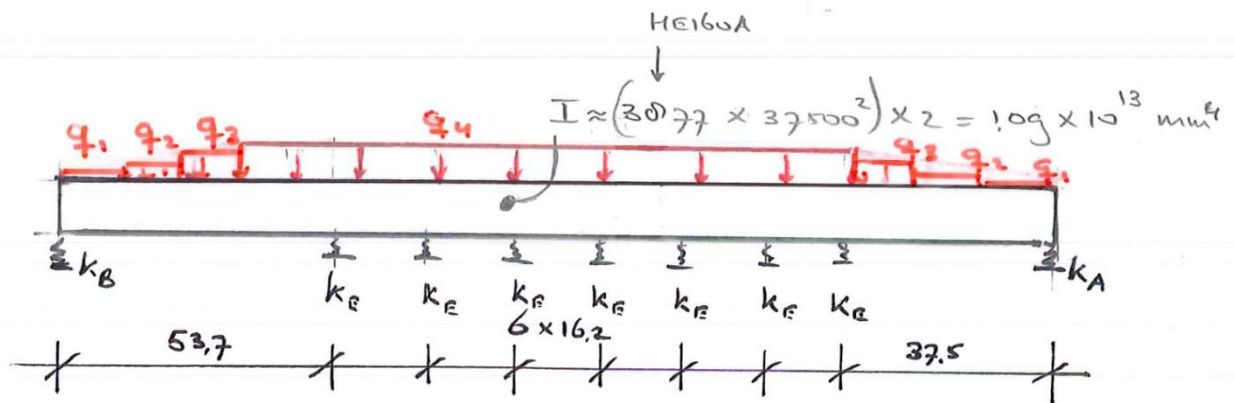 HE160A
I ≈ (3877 × 37500²) × 2 = 1.09 × 10¹³ mm⁴
q₁ q₂ q₃ q₄ q₃ q₂ q₁
k_B k_E k_E k_E k_E k_E k_E k_E k_A
53,7 6 × 16,2 37.5